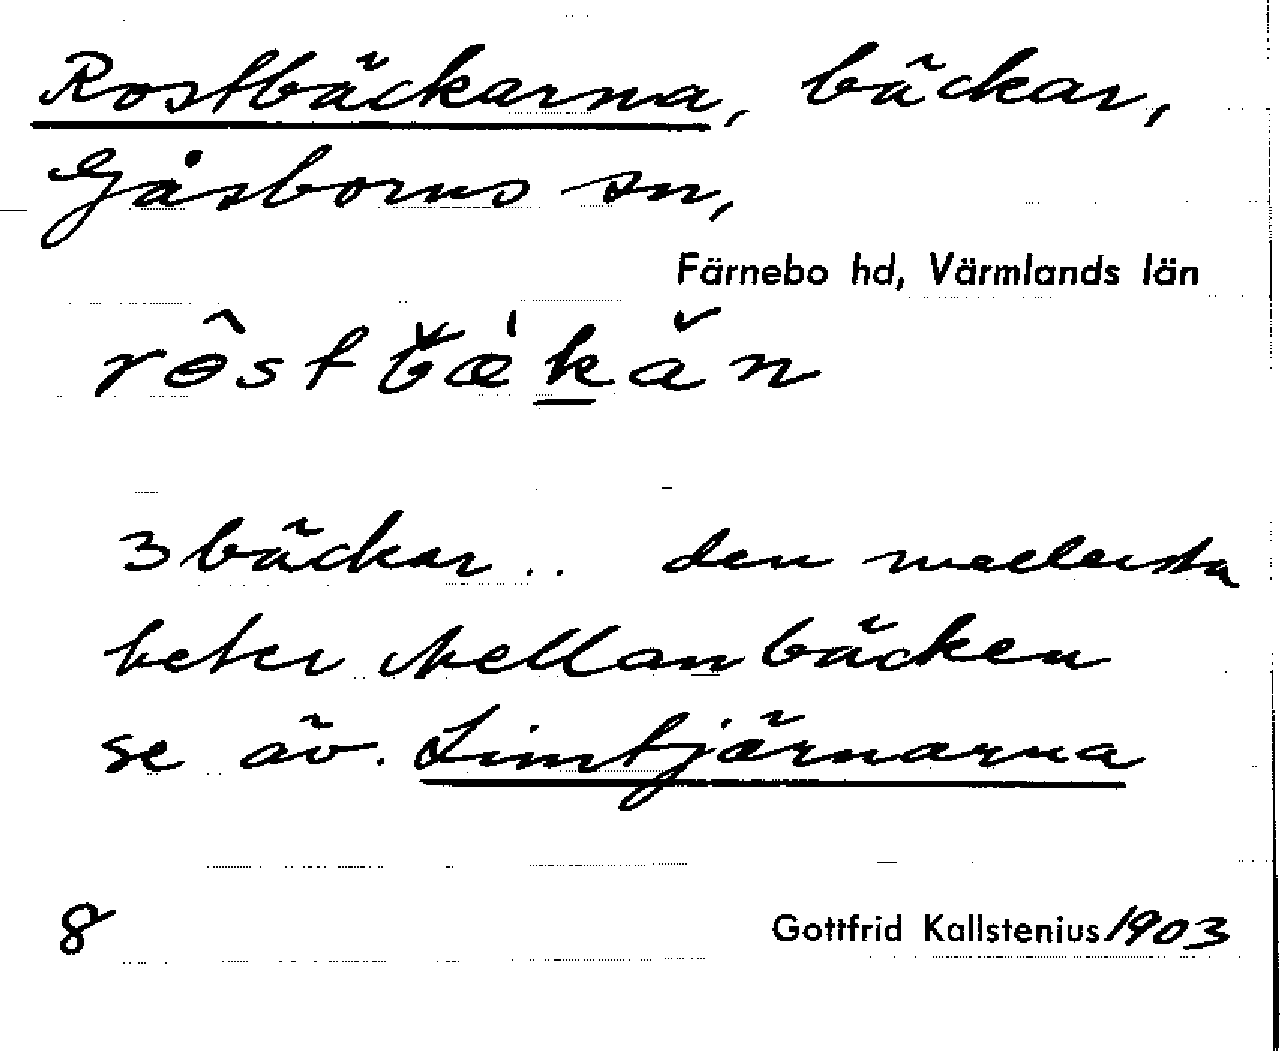 Rostbäckarna, bäckar,
Gåsborns sn,
Färnebo hd, Värmlands län
3 bäckar .. den mellersta
heter Mellanbäcken
se äv. Limtjärnarna
8
Gottfrid Kallstenius 1903